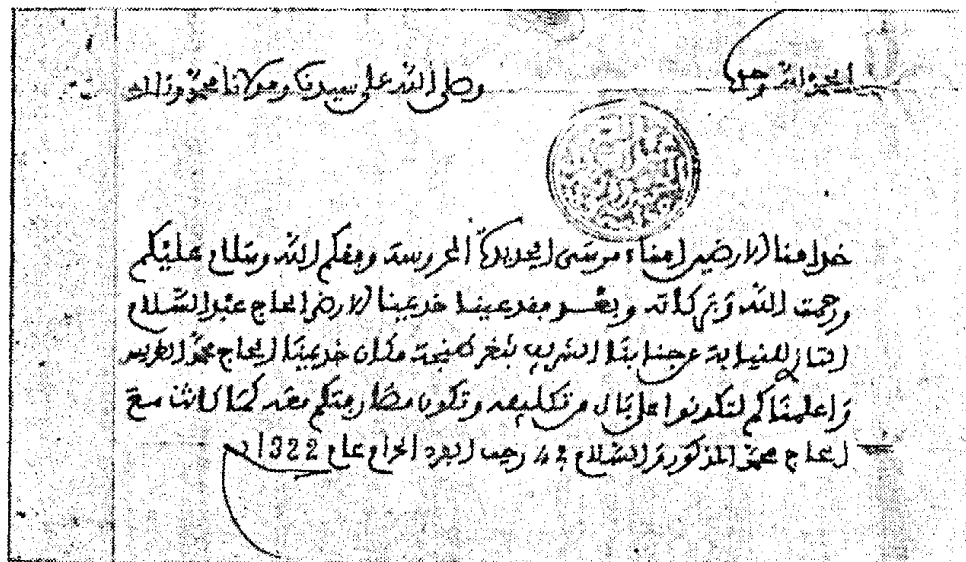 الحمد لله وحده وصلى الله على سيدنا ومولانا محمد وآله
خدامنا الارضين امناء مرسى الجديدة المحروسة وفقكم الله وسلام عليكم
ورحمت الله وبركاته وبعد فقد عينا خديمنا الارضى الحاج عبد السلام
التازي للنيابة عن جنابنا الشريف بثغر طنجة مكان خديمنا الحاج محمد الطريس
واعلمناكم لتكونوا على بال من تكليفه وتكون مطارحتكم معه كما كانت مع
الحاج محمد المذكور والسلام في رجب الفرد الحرام عام 1322